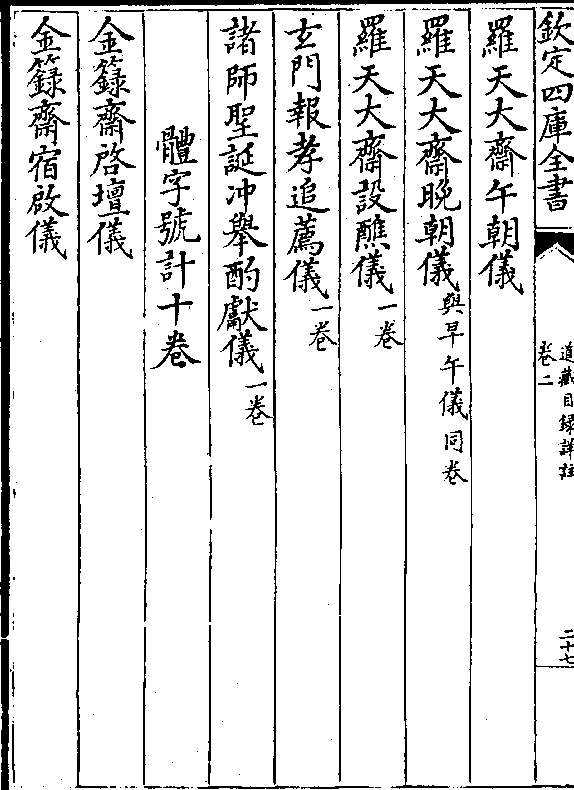 欽定四庫全書
道藏目録詳註
卷二
二十七
羅天大齋午朝儀
羅天大齋晚朝儀與早午儀同卷
羅天大齋設醮儀一卷
玄門報孝追薦儀一卷
諸師聖誕冲舉酌獻儀一卷
體字號計十卷
金籙齋啓壇儀
金籙齋宿啟儀